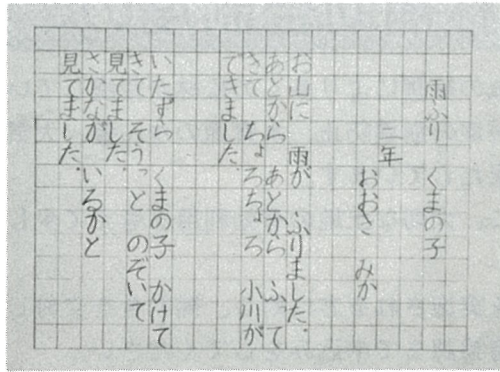 雨ふり　くまの子
二年
おおくご　みか
お山に　雨が　ふりました.
あとから　あとから　ふって
きて　ちょろちょろ　小川が
できました.
いたずら　くまの子　かけて
きて　そうっと　のぞいて
見てました.
さかなが　いるかと
見てました.